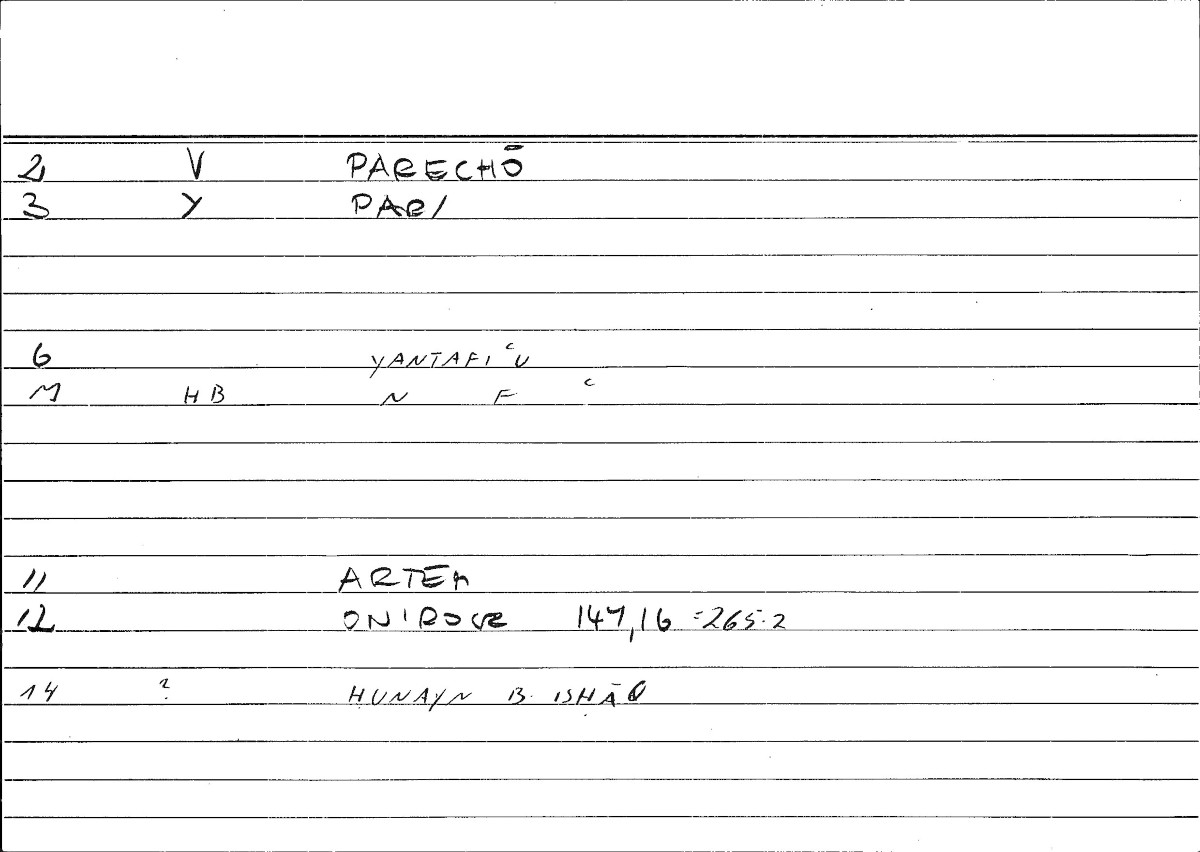 2 V PARECHŌ
3 Y PAR/
6 YANTAFIʿU
M HB N F ʿ
11 ARTEM
12 ONIROCR 147,16 =265.2
14 ? HUNAYN B. ISḤĀQ